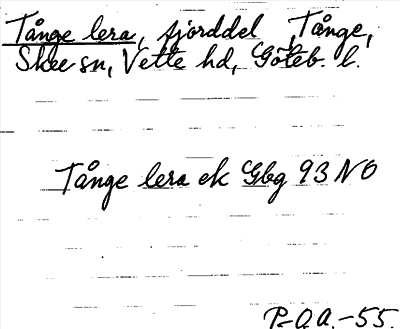 Tånge lera, fjorddel, Tånge,
Skee sn, Vette hd, Göteb. l.
Tånge lera ek Gbg 93 NO
P-O.A.-55.